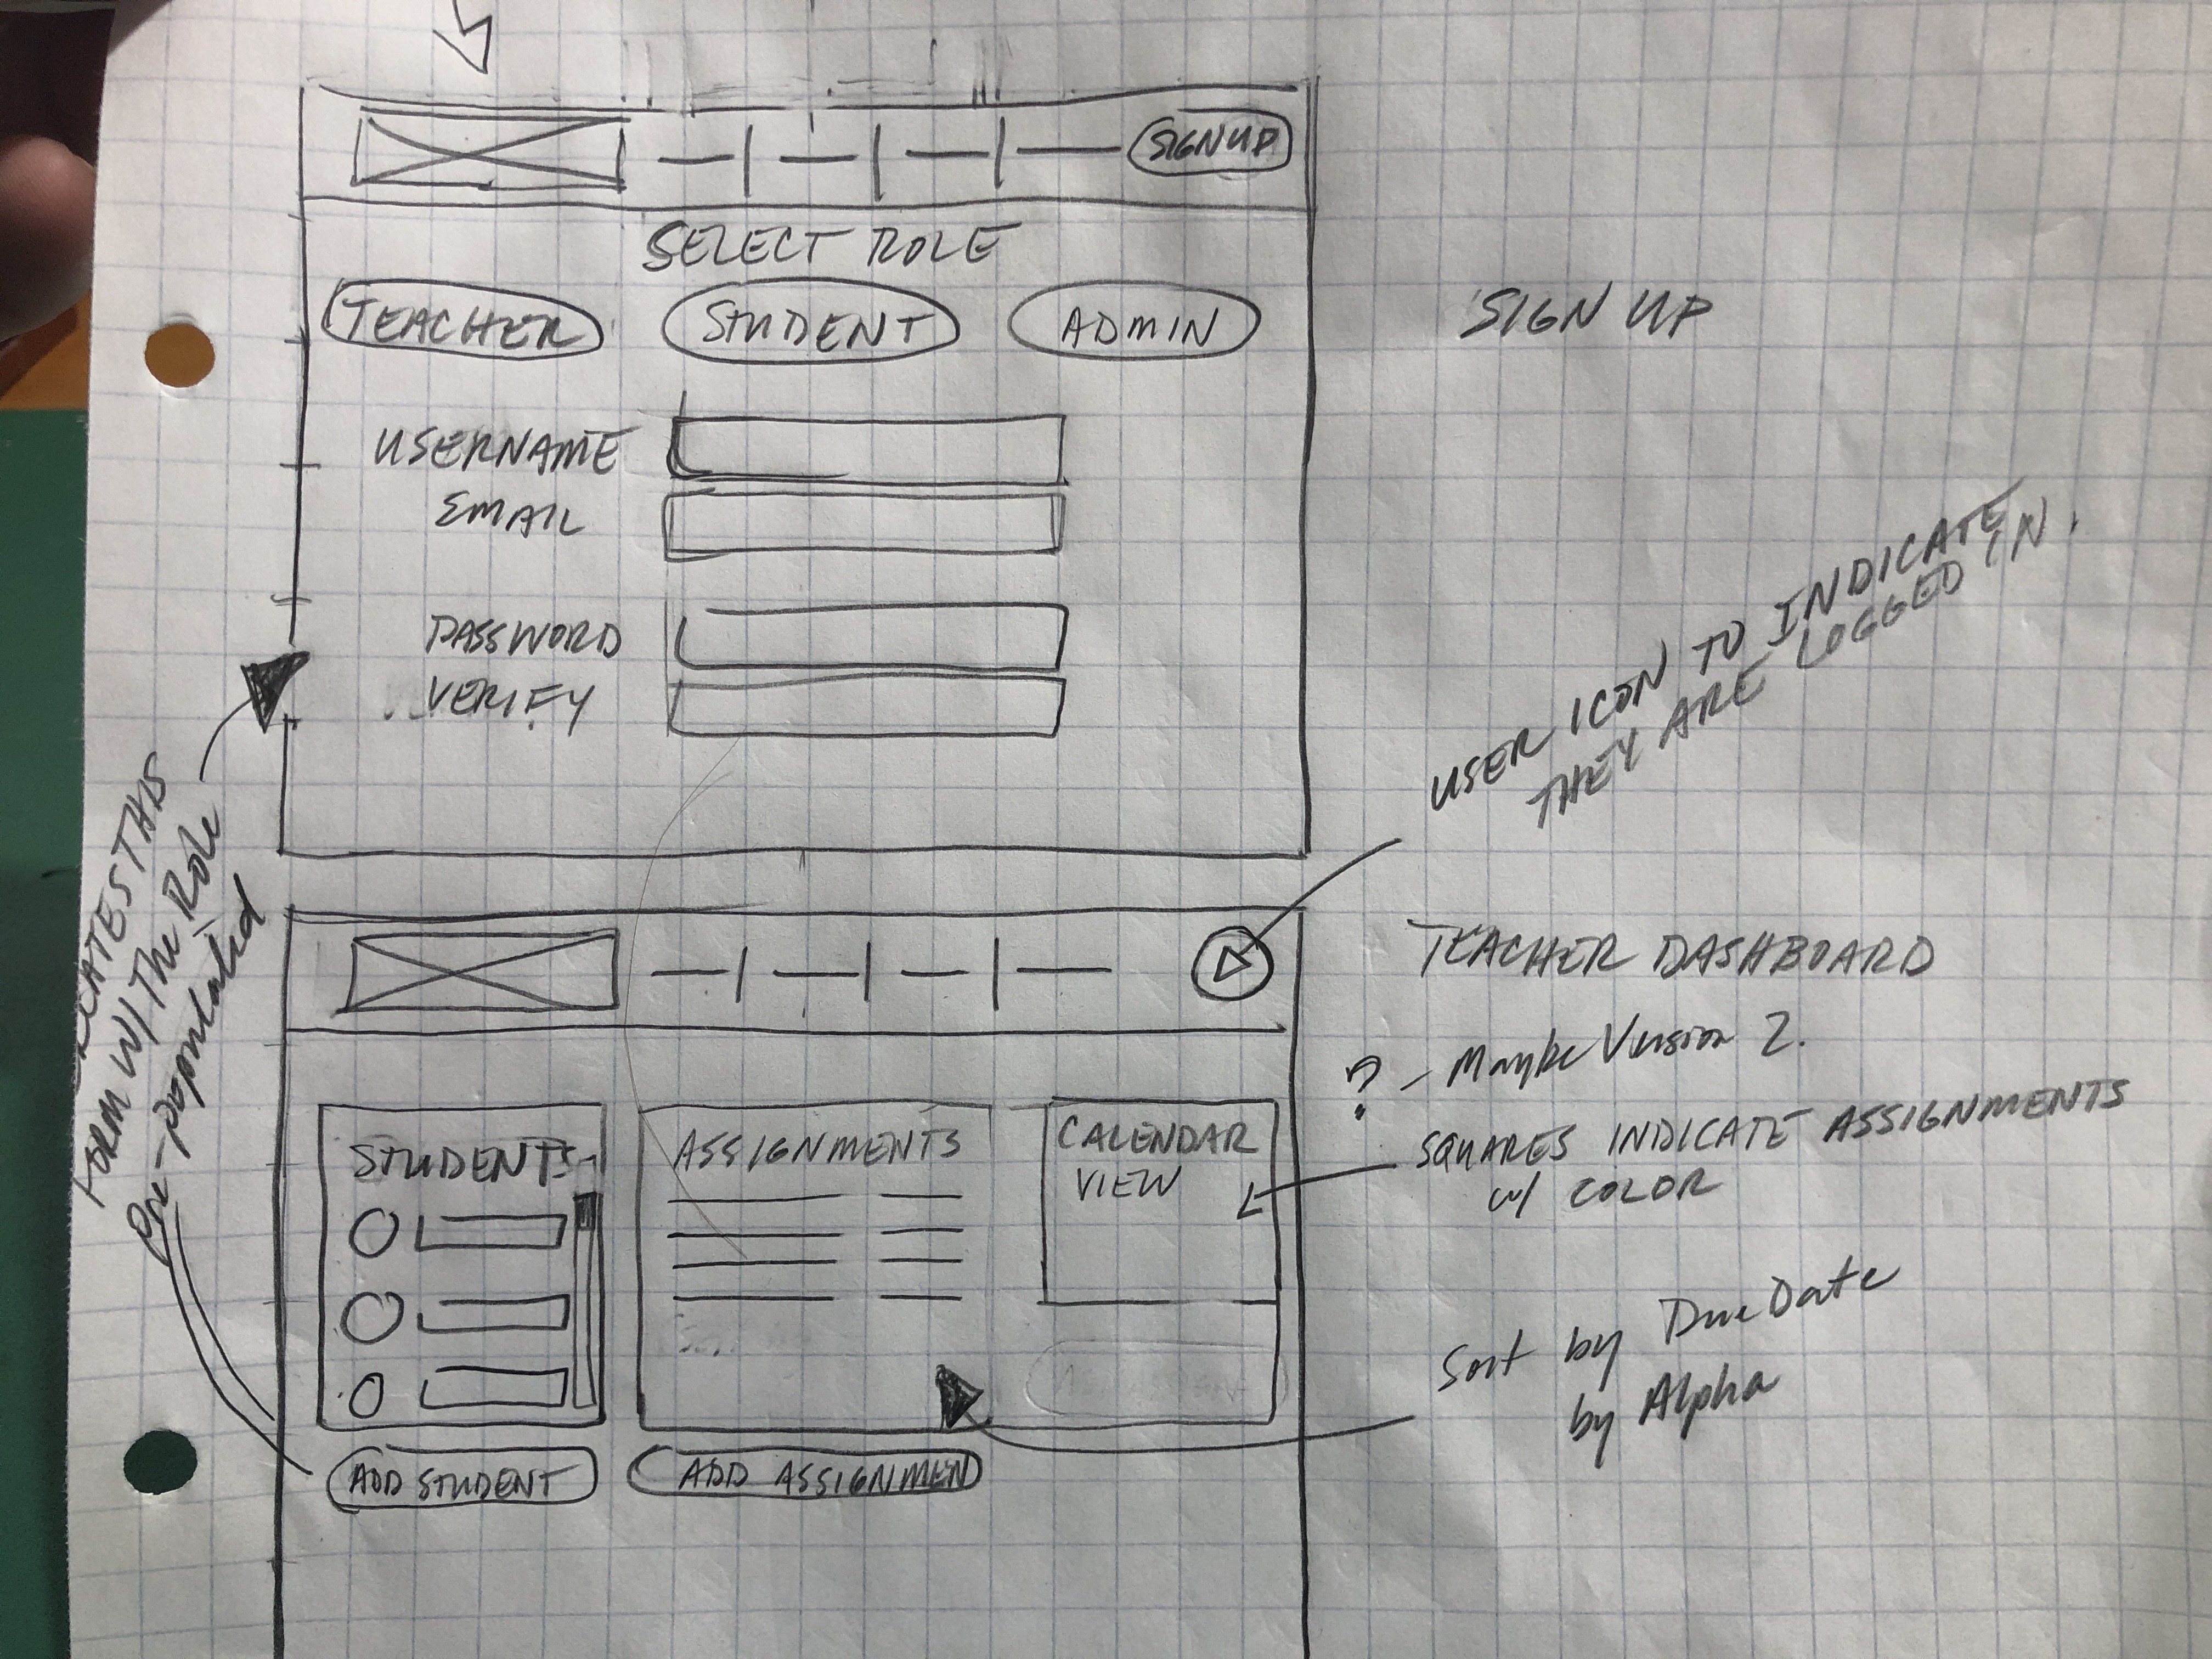 SIGN UP
SELECT ROLE
TEACHER
STUDENT
ADMIN
SIGN UP
USERNAME
EMAIL
PASSWORD
VERIFY
USER ICON TO INDICATE
THEY ARE LOGGED IN.
THIS
FORM W/ The Role
Pre-populated
TEACHER DASHBOARD
? - Maybe Version 2.
SQUARES INDICATE ASSIGNMENTS
w/ COLOR
STUDENTS
ASSIGNMENTS
CALENDAR
VIEW
Sort by Due Date
by Alpha
ADD STUDENT
ADD ASSIGNMEN